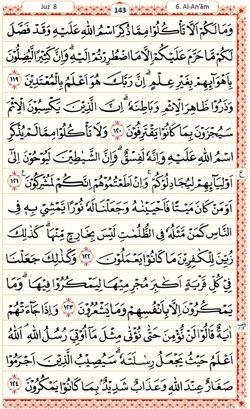 Juz 8
143
6. Al-An'ām
وَمَا لَكُمْ أَلَّا تَأْكُلُوا۟ مِمَّا ذُكِرَ ٱسْمُ ٱللَّهِ عَلَيْهِ وَقَدْ فَصَّلَ
لَكُم مَّا حَرَّمَ عَلَيْكُمْ إِلَّا مَا ٱضْطُرِرْتُمْ إِلَيْهِ ۗ وَإِنَّ كَثِيرًا لَّيُضِلُّونَ
بِأَهْوَآئِهِم بِغَيْرِ عِلْمٍ ۗ إِنَّ رَبَّكَ هُوَ أَعْلَمُ بِٱلْمُعْتَدِينَ ١١٩
وَذَرُوا۟ ظَـٰهِرَ ٱلْإِثْمِ وَبَاطِنَهُۥٓ ۚ إِنَّ ٱلَّذِينَ يَكْسِبُونَ ٱلْإِثْمَ
سَيُجْزَوْنَ بِمَا كَانُوا۟ يَقْتَرِفُونَ ١٢٠ وَلَا تَأْكُلُوا۟ مِمَّا لَمْ يُذْكَرِ
ٱسْمُ ٱللَّهِ عَلَيْهِ وَإِنَّهُۥ لَفِسْقٌ ۗ وَإِنَّ ٱلشَّيَـٰطِينَ لَيُوحُونَ إِلَىٰٓ
أَوْلِيَآئِهِمْ لِيُجَـٰدِلُوكُمْ ۖ وَإِنْ أَطَعْتُمُوهُمْ إِنَّكُمْ لَمُشْرِكُونَ ١٢١
أَوَمَن كَانَ مَيْتًا فَأَحْيَيْنَـٰهُ وَجَعَلْنَا لَهُۥ نُورًا يَمْشِى بِهِۦ فِى
ٱلنَّاسِ كَمَن مَّثَلُهُۥ فِى ٱلظُّلُمَـٰتِ لَيْسَ بِخَارِجٍ مِّنْهَا ۚ كَذَٰلِكَ
زُيِّنَ لِلْكَـٰفِرِينَ مَا كَانُوا۟ يَعْمَلُونَ ١٢٢ وَكَذَٰلِكَ جَعَلْنَا
فِى كُلِّ قَرْيَةٍ أَكَـٰبِرَ مُجْرِمِيهَا لِيَمْكُرُوا۟ فِيهَا ۖ وَمَا
يَمْكُرُونَ إِلَّا بِأَنفُسِهِمْ وَمَا يَشْعُرُونَ ١٢٣ وَإِذَا جَآءَتْهُمْ
ءَايَةٌ قَالُوا۟ لَن نُّؤْمِنَ حَتَّىٰ نُؤْتَىٰ مِثْلَ مَآ أُوتِىَ رُسُلُ ٱللَّهِ ۘ ٱللَّهُ
أَعْلَمُ حَيْثُ يَجْعَلُ رِسَالَتَهُۥ ۗ سَيُصِيبُ ٱلَّذِينَ أَجْرَمُوا۟
صَغَارٌ عِندَ ٱللَّهِ وَعَذَابٌ شَدِيدٌۢ بِمَا كَانُوا۟ يَمْكُرُونَ ١٢٤